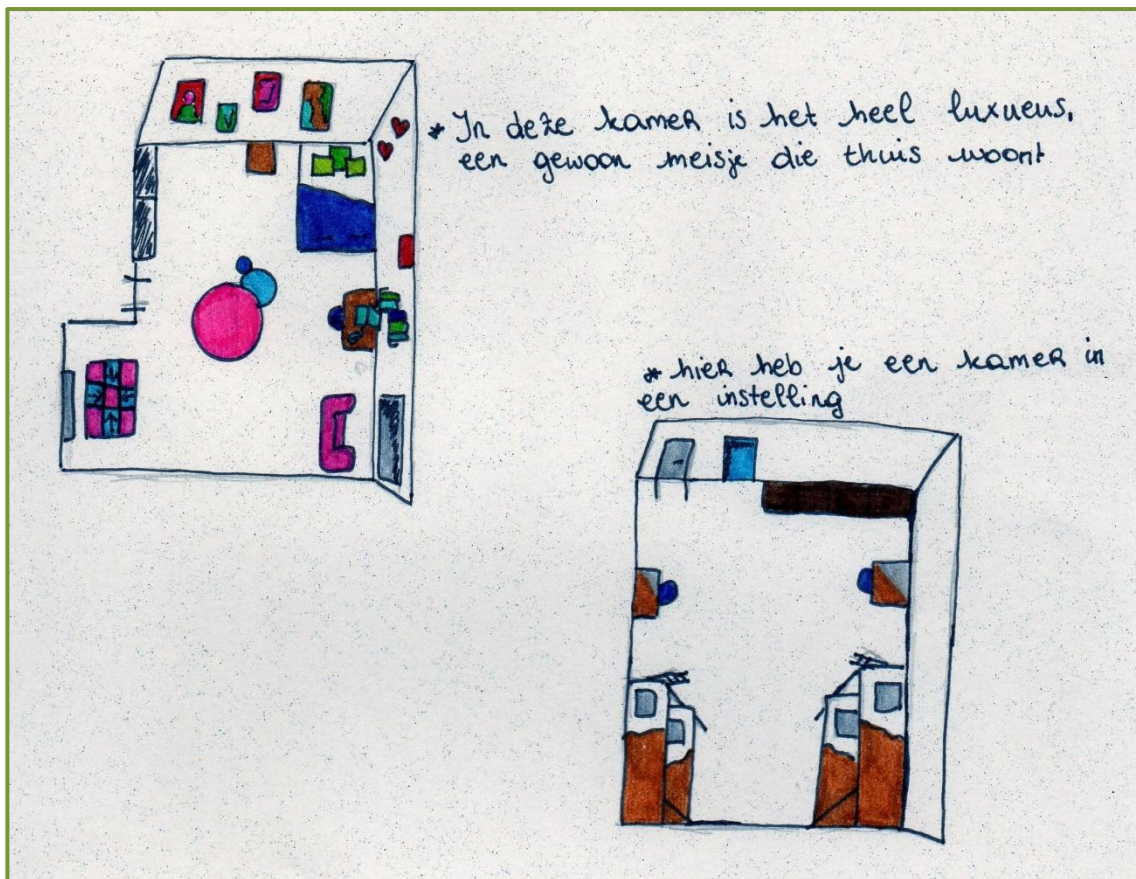 * In deze kamer is het heel luxueus,
een gewoon meisje die thuis woont
* hier heb je een kamer in
een instelling